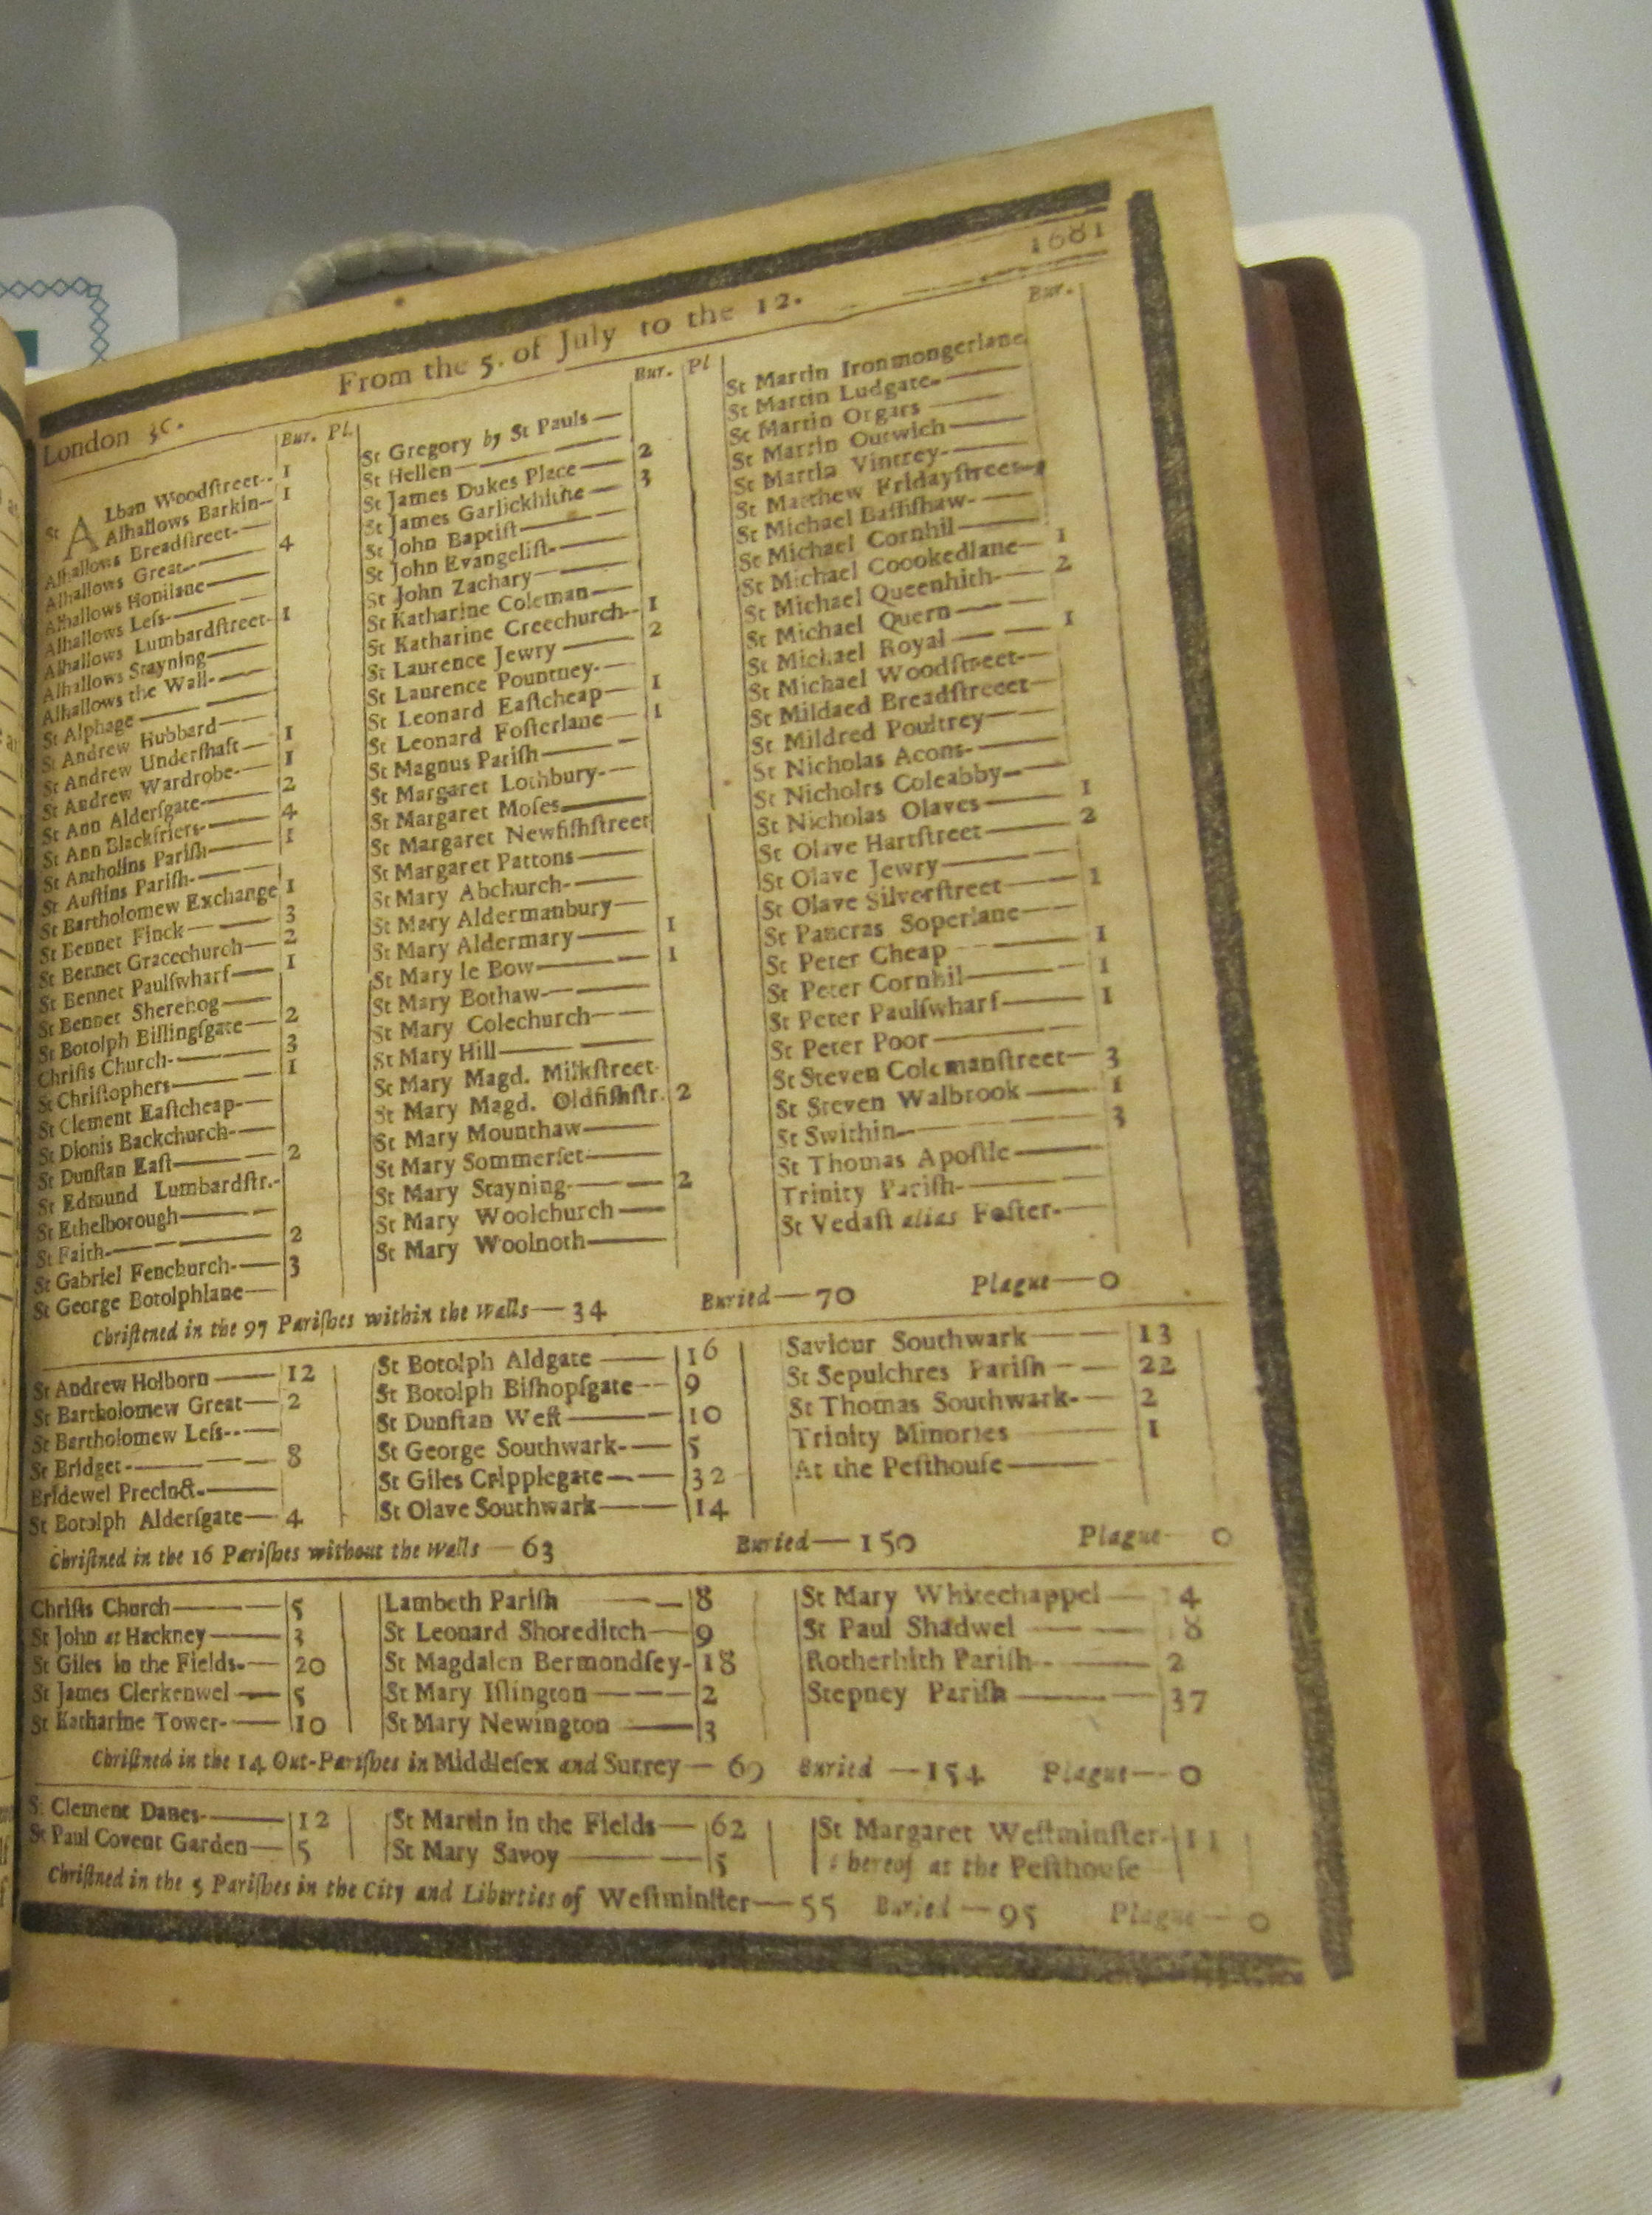 From the 5. of July to the 12.
1681
London
Bur. Pl.
St ALban Woodſtreet-- 1
Alhallows Barkin-- 1
Alhallows Breadſtreet-
Alhallows Great- 4
Alhallows Honilane
Alhallows Leſs
Alhallows Lumbardſtreet- 1
Alhallows Stayning
Alhallows the Wall-
St Alphage
St Andrew Hubbard
St Andrew Underſhaft 1
St Andrew Wardrobe- 1
St Ann Alderſgate 2
St Ann Blackfriers- 4
St Antholins Pariſh 1
St Auſtins Pariſh-
St Bartholomew Exchange 1
St Bennet Finck 3
St Bennet Gracechurch 2
St Bennet Paulſwharf 1
St Bennet Sherehog
St Botolph Billingſgate 2
Chriſts Church- 3
St Chriſtophers 1
St Clement Eaſtcheap-
St Dionis Backchurch-
St Dunſtan Eaſt 2
St Edmund Lumbardſtr.-
St Ethelborough
St Faith 2
St Gabriel Fenchurch- 3
St George Botolphlane
Bur. Pl
St Gregory by St Pauls
St Hellen
St James Dukes Place 2
St James Garlickhithe 3
St John Baptiſt
St John Evangeliſt-
St John Zachary
St Katharine Coleman
St Katharine Creechurch-- 1
St Laurence Jewry 2
St Laurence Pountney-
St Leonard Eaſtcheap 1
St Leonard Foſterlane 1
St Magnus Pariſh
St Margaret Lothbury-
St Margaret Moſes
St Margaret Newfiſhſtreet
St Margaret Pattons
St Mary Abchurch-
St Mary Aldermanbury
St Mary Aldermary 1
St Mary le Bow 1
St Mary Bothaw
St Mary Colechurch
St Mary Hill
St Mary Magd. Milkſtreet-
St Mary Magd. Oldfiſhſtr. 2
St Mary Mounthaw
St Mary Sommerſet
St Mary Stayning 2
St Mary Woolchurch
St Mary Woolnoth
Bur.
St Martin Ironmongerlane
St Martin Ludgate-
St Martin Orgars
St Martin Outwich
St Martin Vintrey-
St Matthew Fridayſtreet
St Michael Baſſiſhaw-
St Michael Cornhil
St Michael Coookedlane 1
St Michael Queenhith- 2
St Michael Quern
St Michael Royal 1
St Michael Woodſtreet-
St Mildaed Breadſtreeet
St Mildred Poultrey
St Nicholas Acons-
St Nicholrs Coleabby
St Nicholas Olaves 1
St Olave Hartſtreet 2
St Olave Jewry
St Olave Silverſtreet 1
St Pancras Soperlane
St Peter Cheap 1
St Peter Cornhil 1
St Peter Paulſwharf 1
St Peter Poor
St Steven Colemanſtreet 3
St Steven Walbrook 1
St Swithin 3
St Thomas Apoſtle
Trinity Pariſh-
St Vedaſt alias Foſter-
Chriſtened in the 97 Pariſhes within the Walls—34 Buried—70 Plague—0
St Andrew Holborn 12
St Bartholomew Great 2
St Bartholomew Leſs--
St Bridget 8
Bridewel Precinct-
St Botolph Alderſgate 4
St Botolph Aldgate 16
St Botolph Biſhopſgate 9
St Dunſtan Weſt 10
St George Southwark- 5
St Giles Cripplegate 32
St Olave Southwark 14
Saviour Southwark 13
St Sepulchres Pariſh 22
St Thomas Southwark- 2
Trinity Minories 1
At the Peſthouſe
Chriſtned in the 16 Pariſhes without the Walls—63 Buried—150 Plague 0
Chriſts Church 5
St John at Hackney 3
St Giles in the Fields 20
St James Clerkenwel 5
St Katharine Tower- 10
Lambeth Pariſh 8
St Leonard Shoreditch 9
St Magdalen Bermondſey- 18
St Mary Iſlington 2
St Mary Newington 3
St Mary Whitechappel 4
St Paul Shadwel 8
Rotherhith Pariſh 2
Stepney Pariſh 37
Chriſtned in the 14 Out-Pariſhes in Middleſex and Surrey—69 Buried—154 Plague—0
St Clement Danes- 12
St Paul Covent Garden 5
St Martin in the Fields 62
St Mary Savoy 5
St Margaret Weſtminſter- 11
hereof at the Peſthouſe
Chriſtned in the 5 Pariſhes in the City and Liberties of Weſtminſter—55 Buried—95 Plague—0